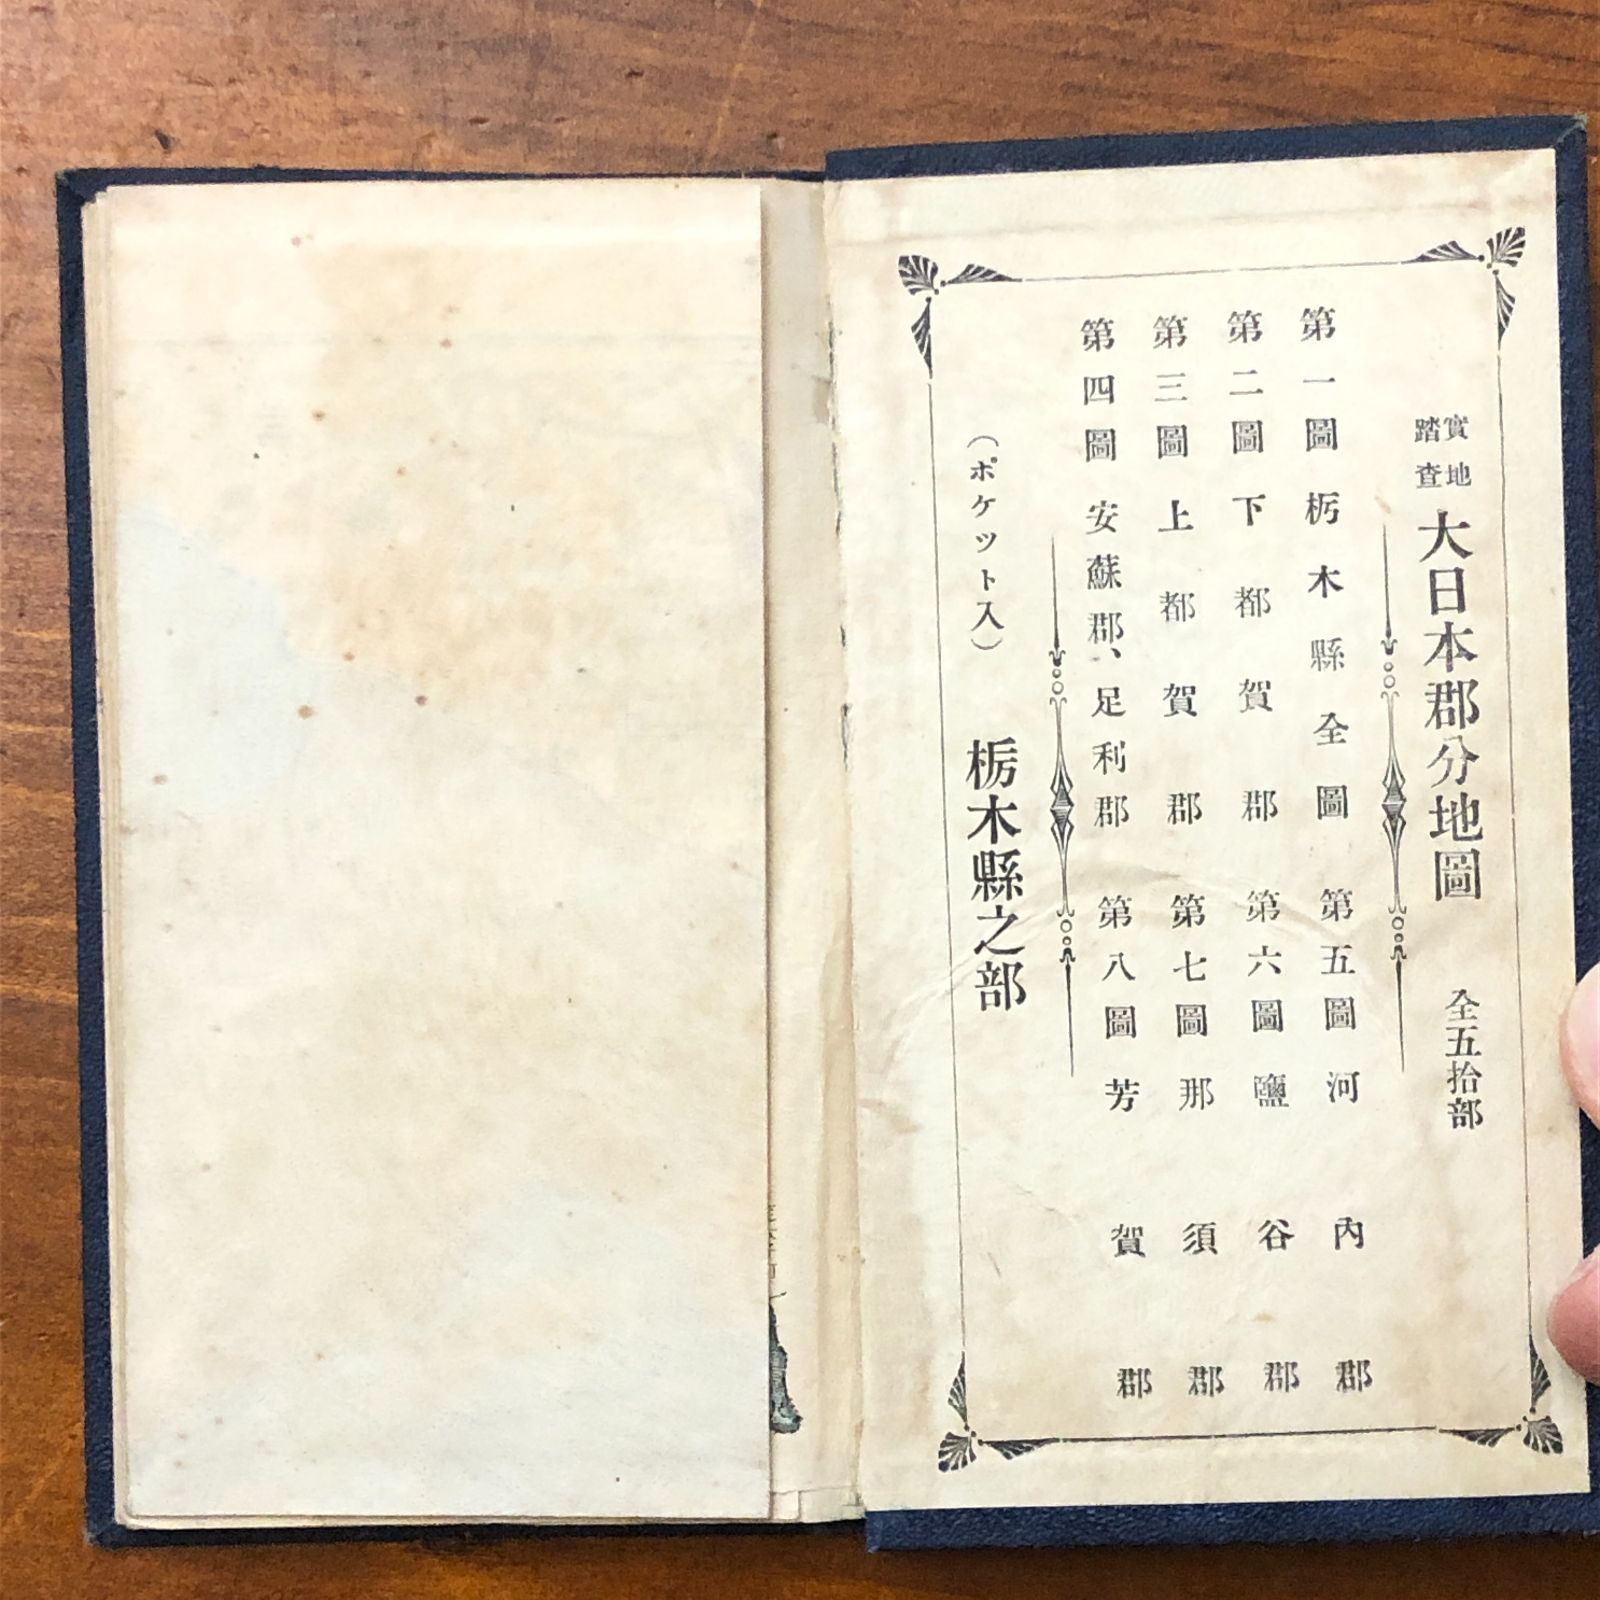 實地踏査 大日本郡分地圖 全五拾部
第一圖 栃木縣全圖
第二圖 下都賀郡
第三圖 上都賀郡
第四圖 安蘇郡、足利郡
第五圖 河內郡
第六圖 鹽谷郡
第七圖 那須郡
第八圖 芳賀郡
(ポケット入) 栃木縣之部